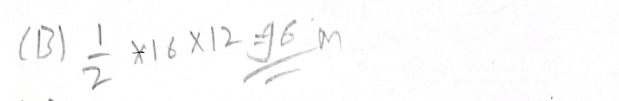 (B) 1/2 × 16 × 12 = 96 m